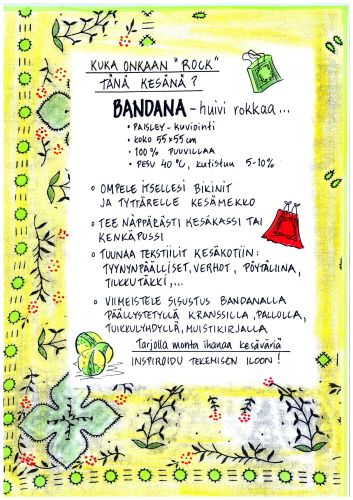 KUKA ONKAAN "ROCK"
TÄNÄ KESÄNÄ?
BANDANA - huivi rokkaa...
• PAISLEY - KUVIOINTI
• KOKO 55x55 cm
• 100 % PUUVILLAA
• PESU 40 °C, kutistuu 5-10%
○ OMPELE ITSELLESI BIKINIT
JA TYTTÄRELLE KESÄMEKKO
○ TEE NÄPPÄRÄSTI KESÄKASSI TAI
KENKÄPUSSI
○ TUUNAA TEKSTIILIT KESÄKOTIIN:
TYYNYNPÄÄLLISET, VERHOT, PÖYTÄLIINA,
TILKKUTÄKKI,...
○ VIIMEISTELE SISUSTUS BANDANALLA
PÄÄLLYSTETYLLÄ KRANSSILLA, PALLOLLA,
TUIKKULYHDYLLÄ, MUISTIKIRJALLA
Tarjolla monta ihanaa kesäväriä
INSPIROIDU TEKEMISEN ILOON!